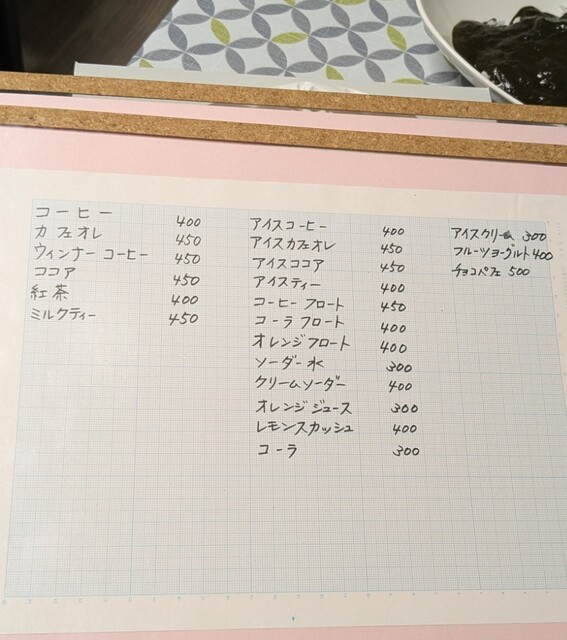 コーヒー 400
カフェオレ 450
ウィンナーコーヒー 450
ココア 450
紅茶 400
ミルクティー 450
アイスコーヒー 400
アイスカフェオレ 450
アイスココア 450
アイスティー 400
コーヒーフロート 450
コーラフロート 400
オレンジフロート 400
ソーダー水 300
クリームソーダー 400
オレンジジュース 300
レモンスカッシュ 400
コーラ 300
アイスクリーム 300
フルーツヨーグルト 400
チョコパフェ 500